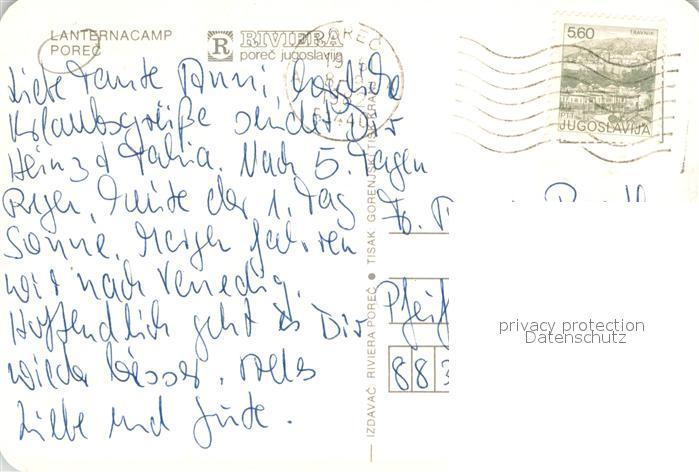 LANTERNACAMP
POREČ
RIVIERA
poreč jugoslavija
POREČ
5,60
TRAVNIK
PTT
JUGOSLAVIJA
Liebe Tante Anni, herzliche
Urlaubsgrüße sendet Dir
Heinz + Tahia. Nach 5 Tagen
Regen, heute der 1. Tag
Sonne. Morgen fahren
wir nach Venedig.
Hoffendlich geht es Dir
wieder besser, alles
Liebe und Gute.
Fr.
Pfeif
88
IZDAVAČ RIVIERA POREČ ● TISAK GORENJSKI TISK KRANJ
privacy protection
Datenschutz